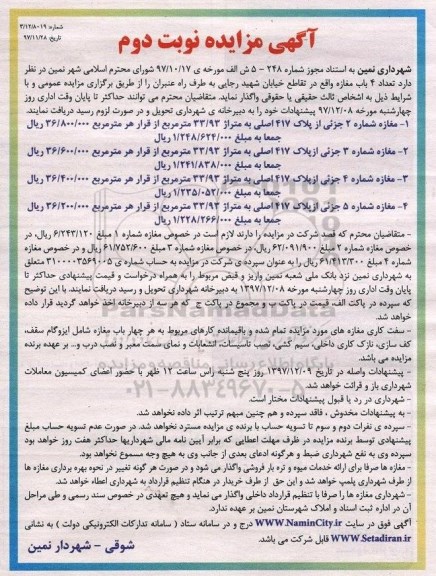 شماره: ۳/۱۲/۸۰۱۹
تاریخ: ۹۷/۱۱/۲۸
آگهی مزایده نوبت دوم
شهرداری نمین به استناد مجوز شماره ۲۴۸ - ۵ ش الف مورخه ی ۹۷/۱۰/۱۷ شورای محترم اسلامی شهر نمین در نظر
دارد تعداد ۴ باب مغازه واقع در تقاطع خیابان شهید رجایی به طرف راه عنبران را از طریق برگزاری مزایده عمومی و با
شرایط ذیل به اشخاص ثالث حقیقی یا حقوقی واگذار نماید. متقاضیان محترم می توانند حداکثر تا پایان وقت اداری روز
چهارشنبه مورخه ۹۷/۱۲/۰۸ پیشنهادات خود را به دبیرخانه ی شهرداری تحویل و در صورت لزوم رسید دریافت نمایند.
۱- مغازه شماره ۲ جزئی از پلاک ۴۱۷ اصلی به متراژ ۳۳/۹۳ مترمربع از قرار هر مترمربع ۳۶/۸۰۰/۰۰۰ ریال
جمعا به مبلغ ۱/۲۴۸/۶۲۴/۰۰۰ ریال
۲- مغازه شماره ۳ جزئی ازپلاک ۴۱۷ اصلی به متراژ ۳۳/۹۳ مترمربع از قرار هر مترمربع ۳۶/۶۰۰/۰۰۰ ریال
جمعا به مبلغ ۱/۲۴۱/۸۳۸/۰۰۰ ریال
۳- مغازه شماره ۴ جزئی ازپلاک ۴۱۷ اصلی به متراژ ۳۳/۹۳ مترمربع از قرار هر مترمربع ۳۶/۴۰۰/۰۰۰ ریال
جمعا به مبلغ ۱/۲۳۵/۰۵۲/۰۰۰ ریال
۴- مغازه شماره ۵ جزئی ازپلاک ۴۱۷ اصلی به متراژ ۳۳/۹۳ مترمربع از قرار هر مترمربع ۳۶/۲۰۰/۰۰۰ ریال
جمعا به مبلغ ۱/۲۲۸/۲۶۶/۰۰۰ ریال
- متقاضیان محترم که قصد شرکت در مزایده را دارند لازم است در خصوص مغازه شماره ۱ مبلغ ۶/۲۴۳/۱۲۰ ریال، در
خصوص مغازه شماره ۲ مبلغ ۶۲/۰۹۱/۹۰۰ ریال، در خصوص مغازه شماره ۳ مبلغ ۶۱/۷۵۲/۶۰۰ ریال و در خصوص مغازه
شماره ۴ مبلغ ۶۱/۴۱۳/۳۰۰ ریال را به عنوان سپرده ی شرکت در مزایده به حساب شماره ی ۳۱۰۰۰۰۳۵۶۹۰۰۵ متعلق
به شهرداری نمین نزد بانک ملی شعبه نمین واریز و فیش مربوط را به همراه درخواست و قیمت پیشنهادی حداکثر تا
پایان وقت اداری روز چهارشنبه مورخه ۱۳۹۷/۱۲/۰۸ به دبیرخانه شهرداری تحویل و رسید دریافت نمایند. با این توضیح
که سپرده در پاکت الف، قیمت در پاکت ب و مجموع در پاکت ج که هر سه از دبیرخانه اخذ خواهد گردید قرار داده
خواهد شد.
- سفت کاری مغازه های مورد مزایده تمام شده و باقیمانده کارهای مربوط به هر چهار باب مغازه شامل ایزوگام سقف،
کف سازی، نازک کاری داخلی، سیم کشی، نصب تاسیسات، انشعابات و نمای سمت معبر و نصب درب و.. بر عهده برنده
مزایده می باشد.
- پیشنهادات واصله در تاریخ ۱۳۹۷/۱۲/۰۹ روز پنج شنبه راس ساعت ۱۲ ظهر با حضور اعضای کمیسیون معاملات
شهرداری باز و قرائت خواهد شد.
- شهرداری در رد یا قبول پیشنهادات مختار است.
- به پیشنهادات مخدوش ، فاقد سپرده و هم چنین مبهم ترتیب اثر داده نخواهد شد.
- سپرده ی نفرات دوم و سوم تا تسویه حساب با برنده ی مزایده مسترد نخواهد شد. در صورت عدم تسویه حساب مبلغ
پیشنهادی توسط برنده مزایده در ظرف مهلت اعطایی که برابر آیین نامه مالی شهرداریها حداکثر هفت روز خواهد بود
سپرده وی به نفع شهرداری ضبط و هرگونه ادعای بعدی از جانب وی به هیچ وجه مسموع نخواهد بود.
- مغازه ها صرفا برای ارائه خدمات میوه و تره بار فروشی واگذار می شود و در صورت هر گونه تغییر در نحوه بهره برداری مغازه ها
از طرف شهرداری پلمپ خواهد شد و این حق از طرف خریدار در هنگام تنظیم قرارداد به شهرداری اعطاء خواهد شد.
- شهرداری مغازه ها را صرفا با تنظیم قرارداد داخلی واگذار می نماید و هیچ تعهدی در خصوص سند رسمی و طی مراحل
آن در اداره ثبت اسناد و املاک شهرستان نمین بر عهده ندارد.
آگهی فوق در سایت WWW.NaminCity.ir درج و در سامانه ستاد ( سامانه تدارکات الکترونیکی دولت ) به نشانی
WWW.Setadiran.ir قابل شرکت می باشد.
شوقی - شهردار نمین
ParsNamadData
۰۲۱-۸۸۳۴۹۶۷۰-۵